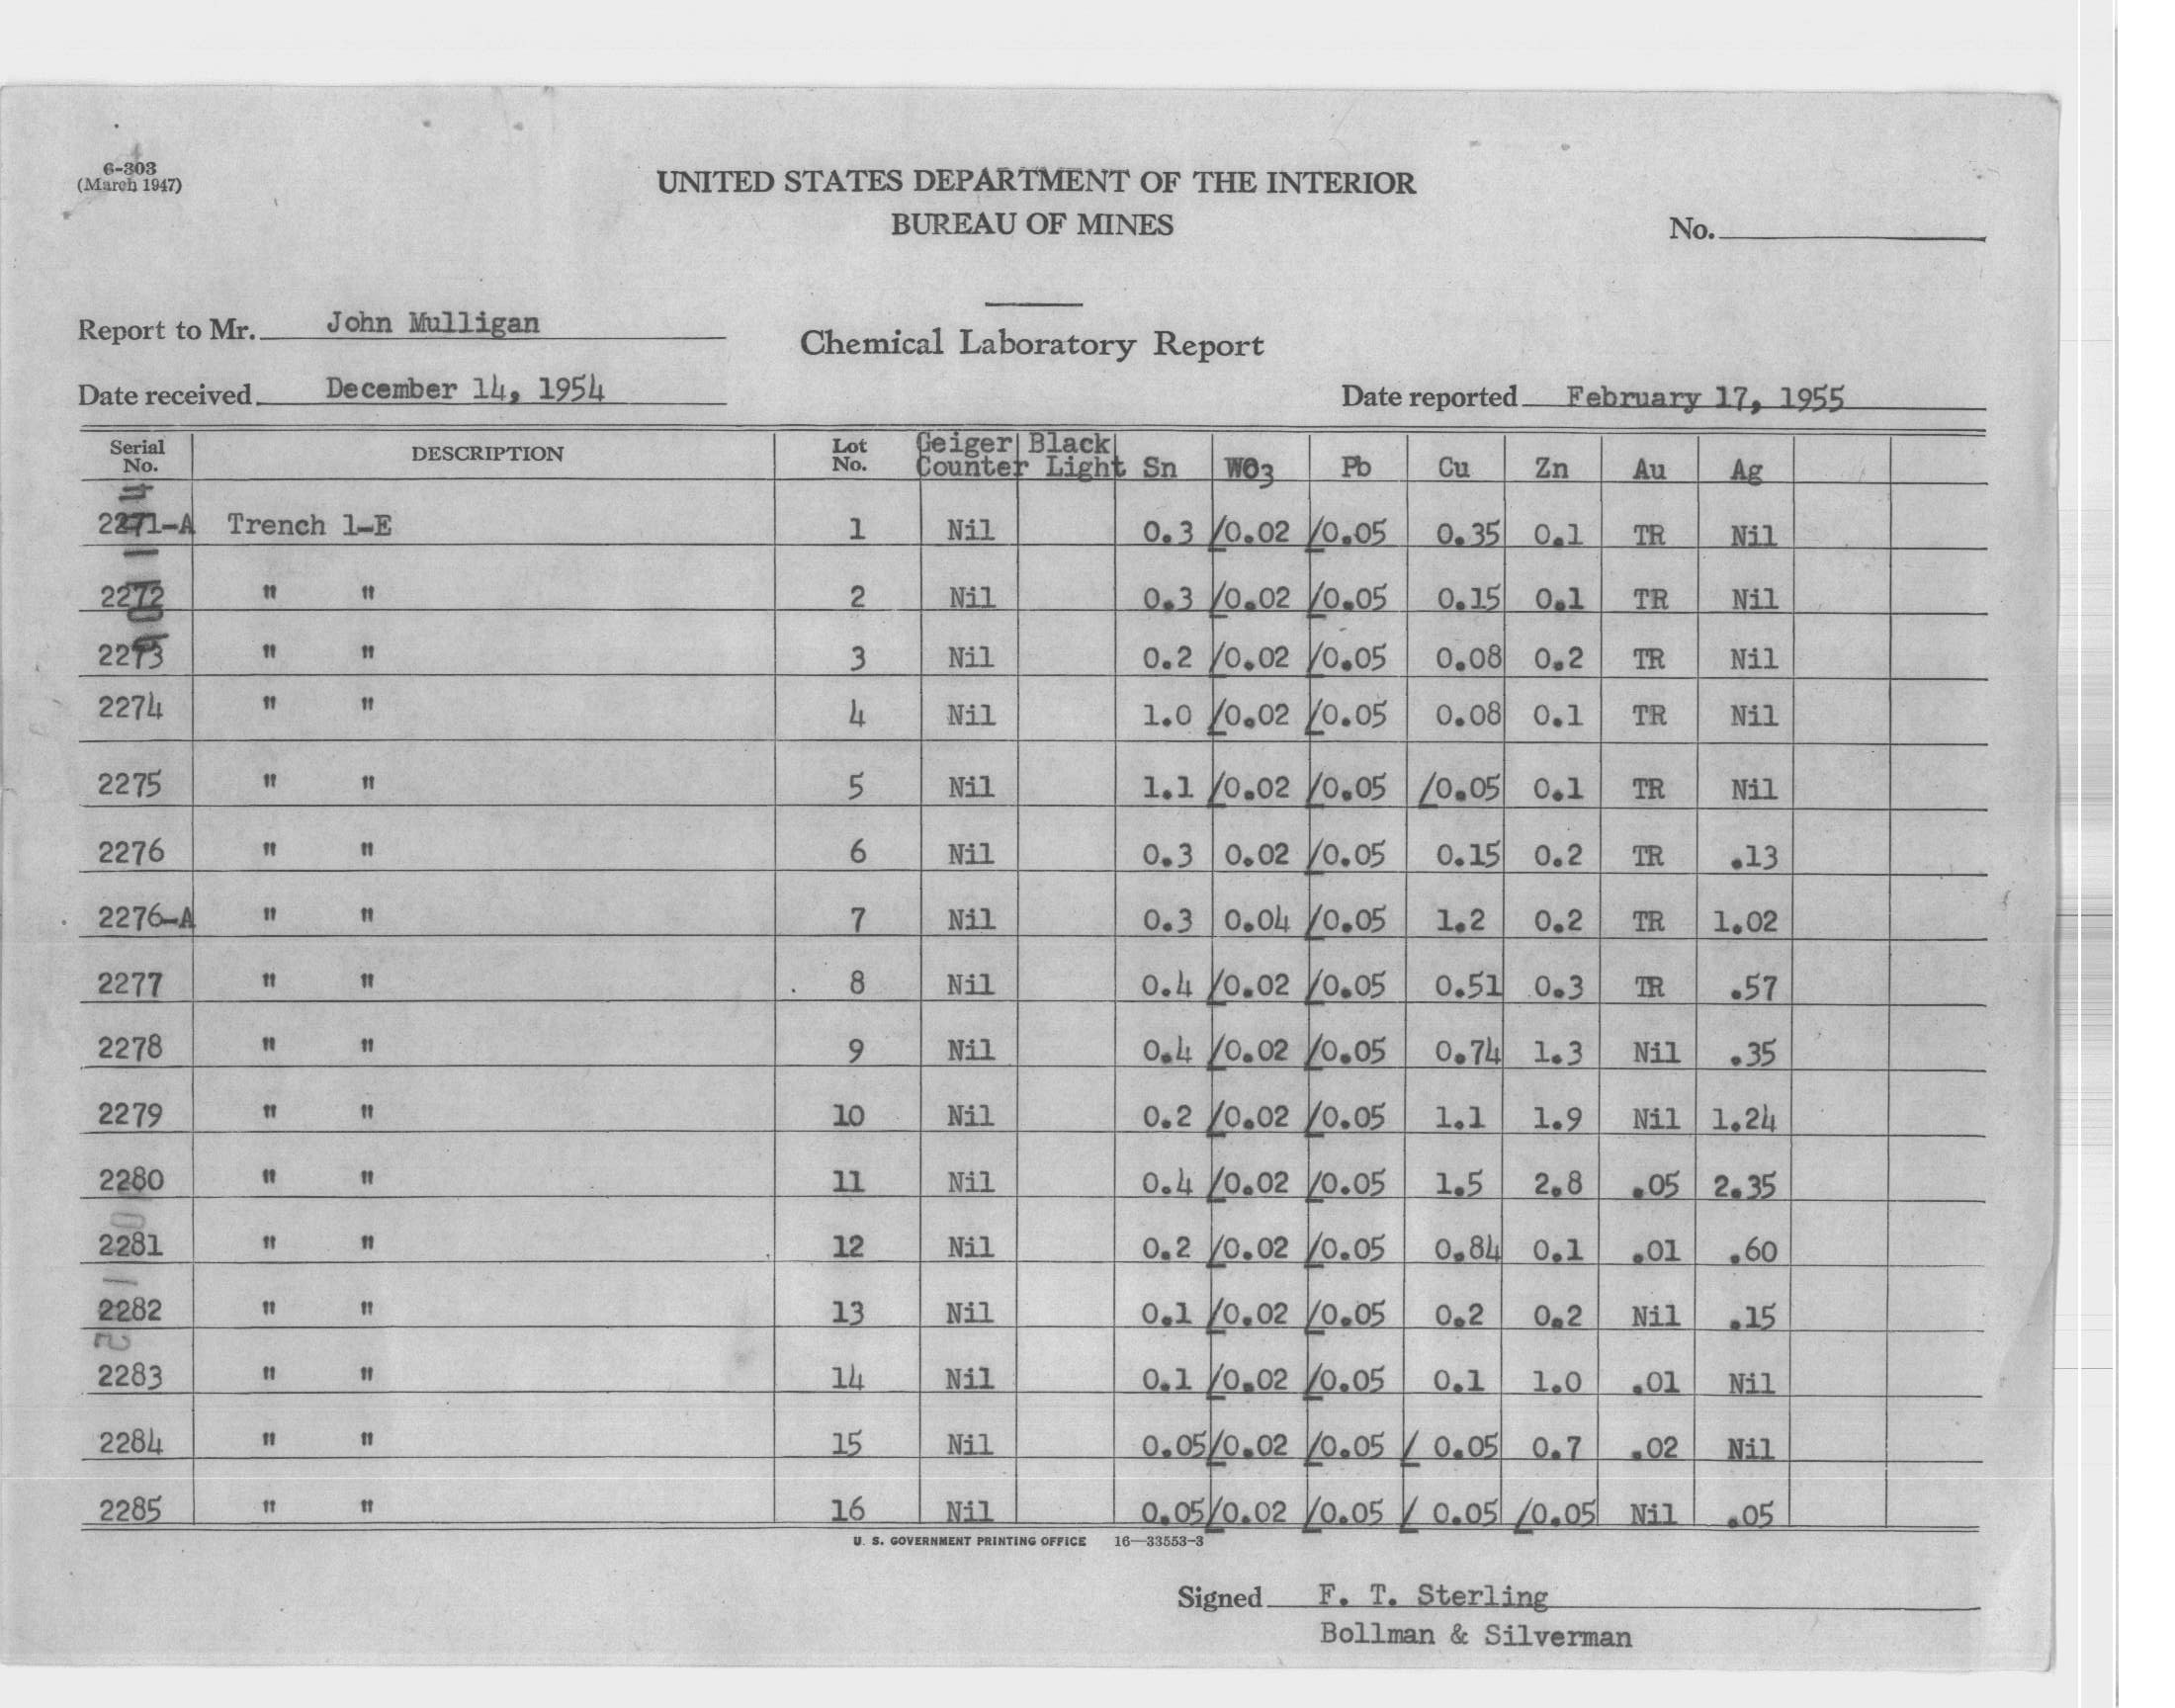 6-303
(March 1947)
UNITED STATES DEPARTMENT OF THE INTERIOR
BUREAU OF MINES
No.
Report to Mr. John Mulligan
Chemical Laboratory Report
Date received December 14, 1954
Date reported February 17, 1955
Serial No. DESCRIPTION Lot No. Geiger Counter Black Light Sn WO3 Pb Cu Zn Au Ag
2271-A Trench 1-E 1 Nil 0.3 /0.02 /0.05 0.35 0.1 TR Nil
2272 " " 2 Nil 0.3 /0.02 /0.05 0.15 0.1 TR Nil
2273 " " 3 Nil 0.2 /0.02 /0.05 0.08 0.2 TR Nil
2274 " " 4 Nil 1.0 /0.02 /0.05 0.08 0.1 TR Nil
2275 " " 5 Nil 1.1 /0.02 /0.05 /0.05 0.1 TR Nil
2276 " " 6 Nil 0.3 0.02 /0.05 0.15 0.2 TR .13
2276-A " " 7 Nil 0.3 0.04 /0.05 1.2 0.2 TR 1.02
2277 " " 8 Nil 0.4 /0.02 /0.05 0.51 0.3 TR .57
2278 " " 9 Nil 0.4 /0.02 /0.05 0.74 1.3 Nil .35
2279 " " 10 Nil 0.2 /0.02 /0.05 1.1 1.9 Nil 1.24
2280 " " 11 Nil 0.4 /0.02 /0.05 1.5 2.8 .05 2.35
2281 " " 12 Nil 0.2 /0.02 /0.05 0.84 0.1 .01 .60
2282 " " 13 Nil 0.1 /0.02 /0.05 0.2 0.2 Nil .15
2283 " " 14 Nil 0.1 /0.02 /0.05 0.1 1.0 .01 Nil
2284 " " 15 Nil 0.05 /0.02 /0.05 / 0.05 0.7 .02 Nil
2285 " " 16 Nil 0.05 /0.02 /0.05 / 0.05 /0.05 Nil .05
U. S. GOVERNMENT PRINTING OFFICE 16—33553-3
Signed F. T. Sterling
Bollman & Silverman